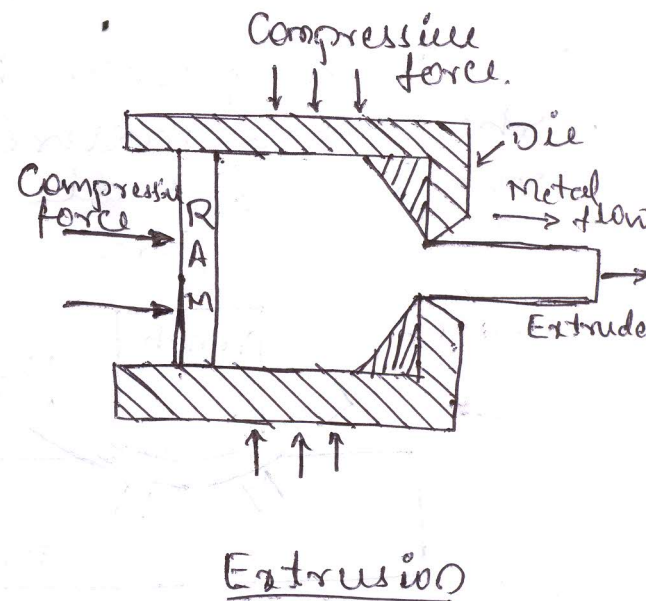 Compressive
force.
Die
Compressiv
force
Metal
flow
RAM
Extrude
Extrusion